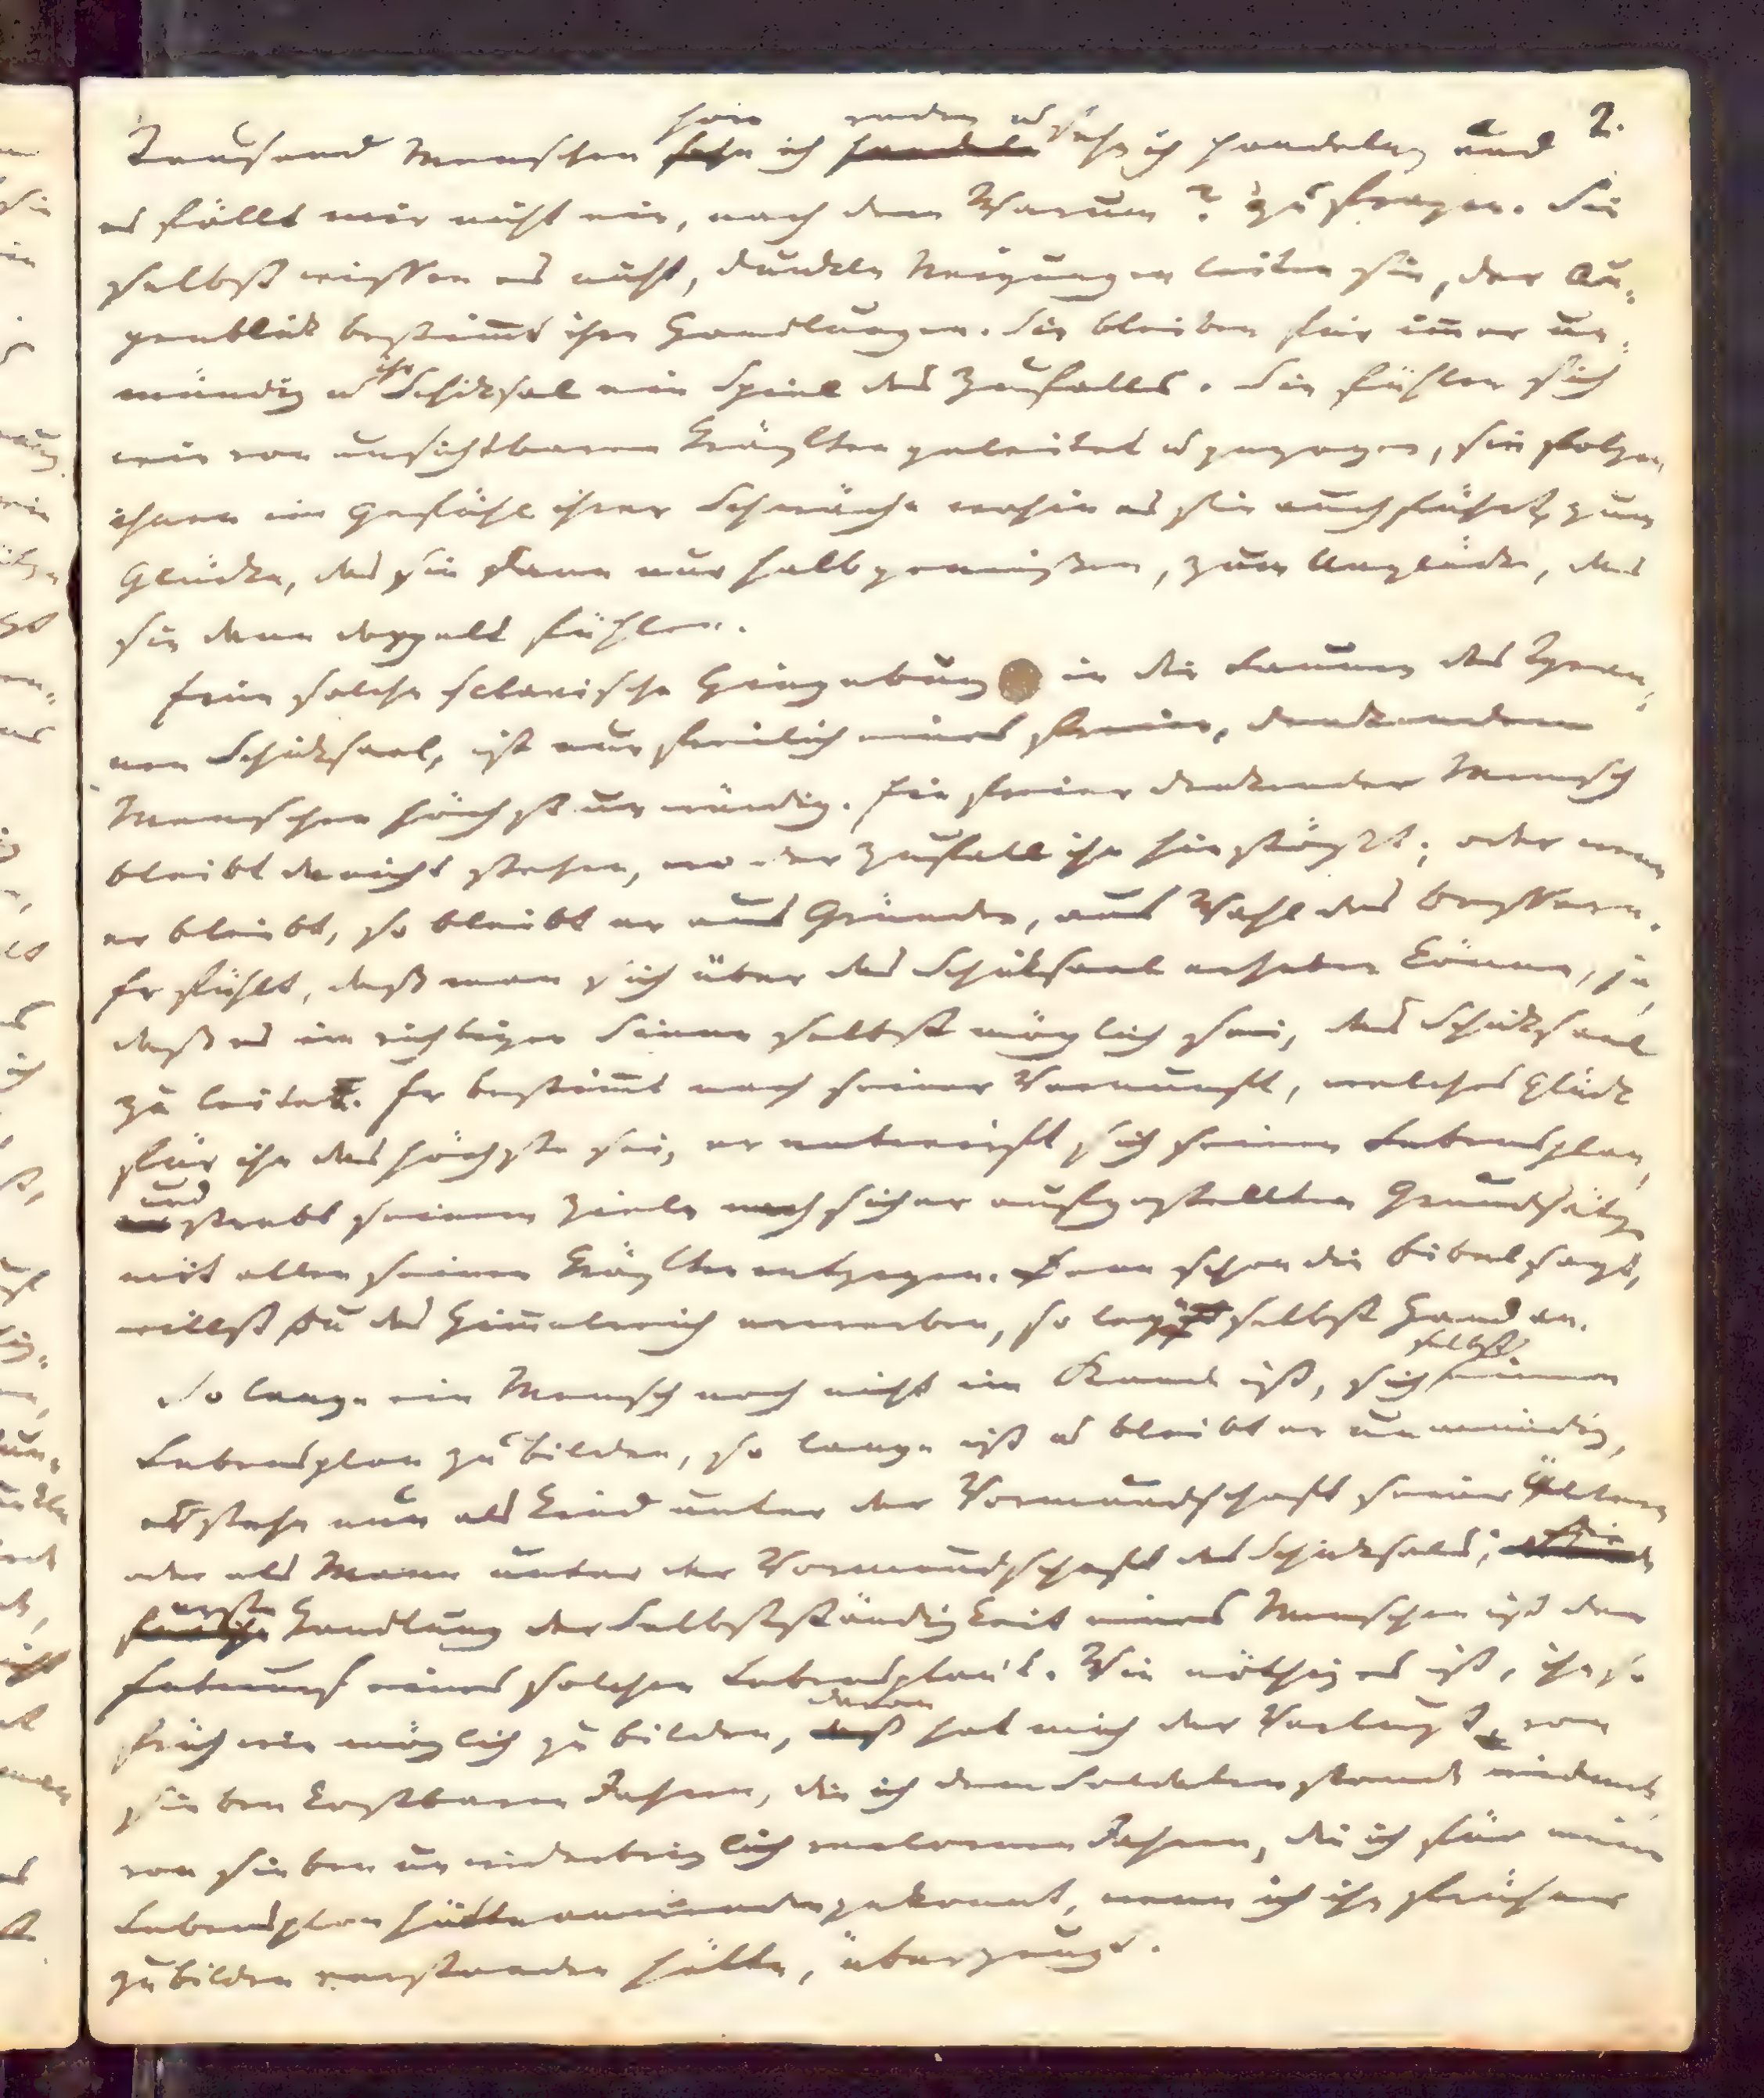 2.
Tausend Menschen höre ich reden u sehe ich handeln, und
es fällt mir nicht ein, nach dem Warum? zu fragen. Sie
selbst wissen es nicht, dunkle Neigungen leiten sie, der Au-
genblick bestimt ihre Handlungen. Sie bleiben für imer un-
mündig u ihr Schicksal ein Spiel des Zufalls. Sie fühlen sich
wie von unsichtbaren Kräften geleitet u gezogen, sie folgen
ihnen im Gefühl ihrer Schwäche wohin es sie auch führt, zum
Glücke, das sie dann nur halb genießen, zum Unglücke, das
sie dann doppelt fühlen.
Eine solche sclavische Hingebung in die Launen des Tyran-
nen Schicksaal, ist nun freilich eines freien, denkenden
Menschen höchst unwürdig. Ein freier denkender Mensch
bleibt da nicht stehen, wo der Zufall ihn hinstößt; oder wenn
er bleibt, so bleibt er aus Gründen, aus Wahl des Bessern.
Er fühlt, daß man sich über das Schicksaal erheben könne, ja,
daß es im richtigen Sinne selbst möglich sei, das Schicksaal
zu leiten. Er bestimt nach seiner Vernunft, welches Glück
für ihn das höchste sei, er entwirft sich seinen Lebensplan,
und strebt seinem Ziele nach sicher aufgestellten Grundsätzen
mit allen seinen Kräften entgegen. Denn schon die Bibel sagt,
willst du das Himelreich erwerben, so lege selbst Hand an.
So lange ein Mensch noch nicht im Stande ist, sich selbst einen
Lebensplan zu bilden, so lange ist u bleibt er unmündig,
er stehe nun als Kind unter der Vormundschaft seiner Ältern
oder als Mann unter der Vormundschaft des Schicksals; Die
erste Handlung der Selbstständigkeit eines Menschen ist der
Entwurf eines solchen Lebensplan's. Wie nöthig es ist, ihn so
früh wie möglich zu bilden, davon hat mich der Verlust von
sieben kostbaren Jahren, die ich dem Soldatenstande widmete,
von sieben unwiederbringlich verlornen Jahren, die ich für meinen
Lebensplan hätte anwenden gekonnt, wenn ich ihn früher
zu bilden verstanden hätte, überzeugt.